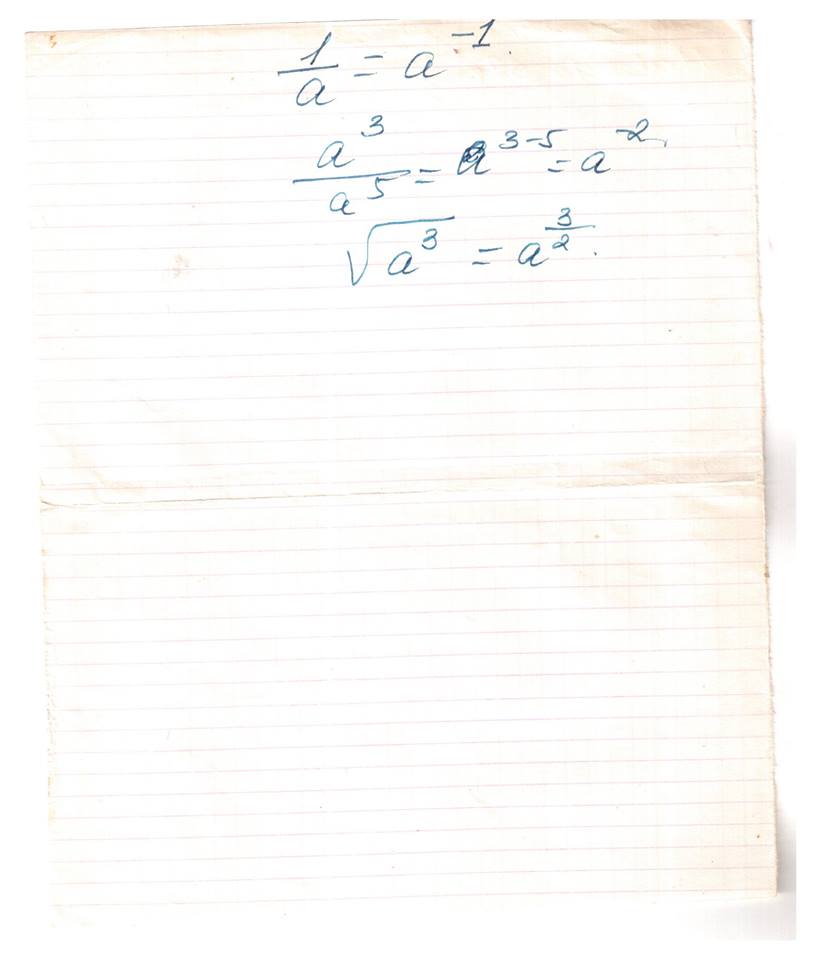 1/a = a^-1.
a^3/a^5 = a^3-5 = a^-2.
√a^3 = a^3/2.